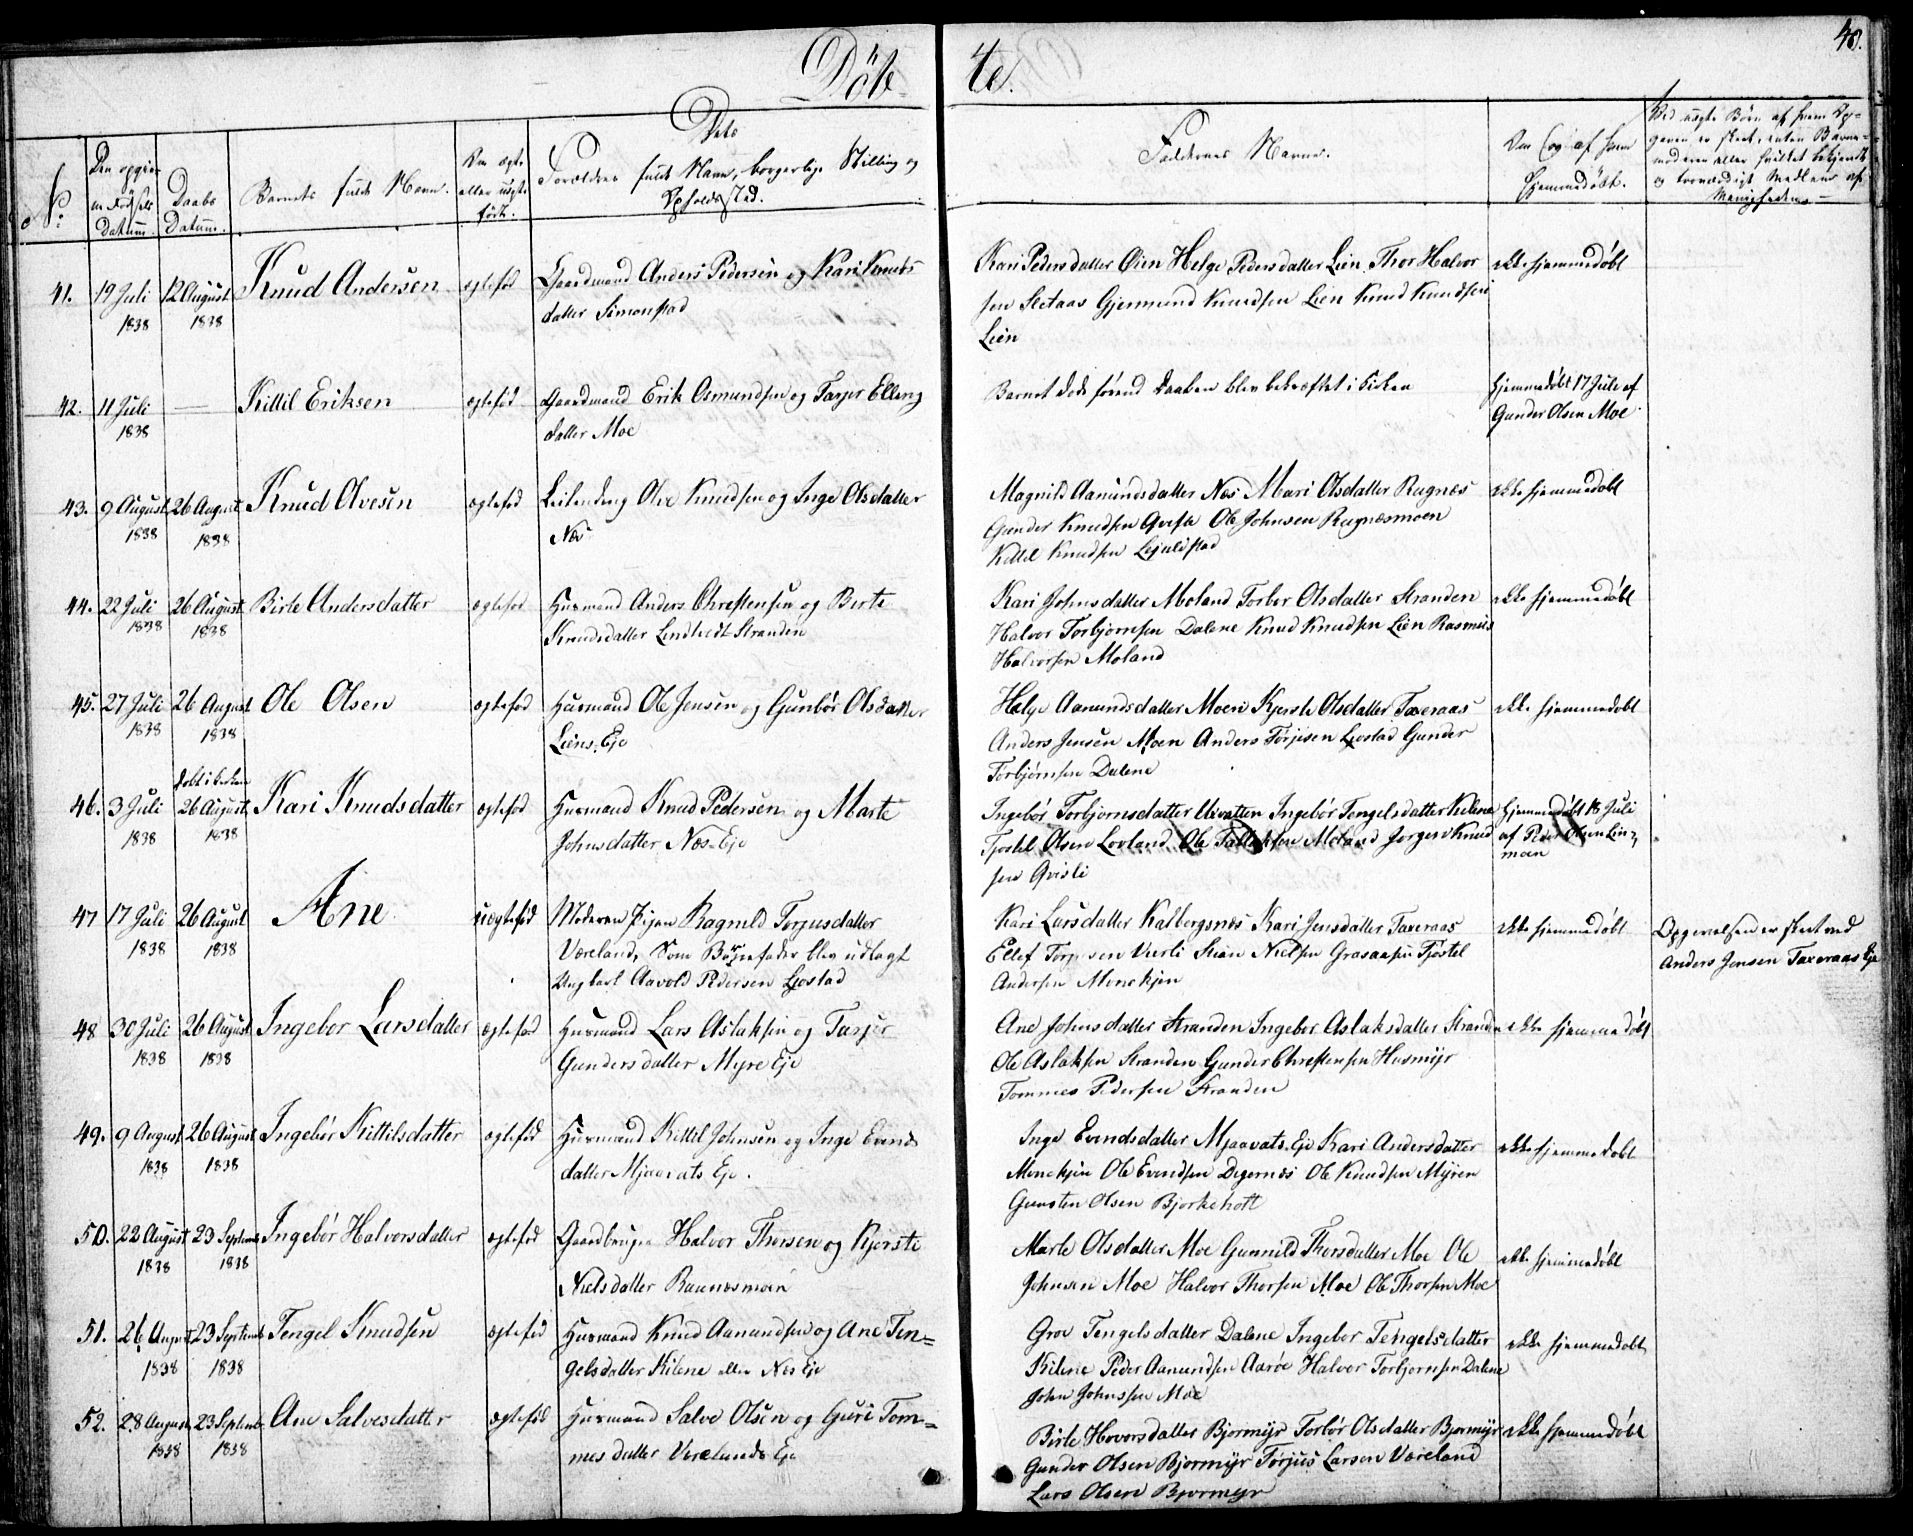 Döb
te.
40.
No:
Den opgivne Fødsels Datum.
Daabs Datum.
Barnets fulde Navn.
Om ægte eller uægte født.
Dets
Forældres fulde Navn, borgerlige Stilling og
Opholdssted.
Faddernes Navne.
Om (og af hvem
Hjemmedöbt.
Ved uægte Börn af hvem Op-
gaven er skeet, enten Barne-
moderen eller hvilket bekjendt
og troværdigt Medlem af
Menigheden.
41. 19 Juli 1838 12 August 1838 Knud Andersen ægtefød
Gaardmand Anders Pedersen og Kari Knuds-
datter Simonstad
Kari Pedersdatter Öien Helge Pedersdatter Lien Thor Halvor
sen Sletaas Gjermund Knudsen Lien Knud Knudsen
Lien
ikke hjemmedöbt
42. 11 Juli 1838 — Kittil Eriksen ægtefød
Gaardmand Erik Osmundsen og Tarjer Elling
datter Moe
Barnet døde førend Daaben blev bekræftet i Kirken
hjemmedöbt 17 Juli af
Gunder Olsen Moe
43. 9 August 1838 26 August 1838 Knud Olvesen ægtefød
Leilending Olve Knudsen og Inge Olsdatter
Næs
Magnild Aanundsdatter Næs Mari Olsdatter Rugnæs
Gunder Knudsen Qvisle Ole Johnsen Rugnæsmoen
Kittil Knudsen
ikke hjemmedöbt
44. 22 Juli 1838 26 August 1838 Birte Andersdatter ægtefød
Husmand Anders Chrestensen og Berte
Knudsdatter Lindtvedt Stranden
Kari Johnsdatter Moland Torber Olsdatter Stranden
Halvor Torbjornsen Dalene Knud Knudsen Lien Rasmus
Halvorsen Moland
ikke hjemmedöbt
45. 27 Juli 1838 26 August 1838 Ole Olsen ægtefød
Husmand Ole Jensen og Gunbör Olsdatter
Liens Eje
Helge Aanundsdatter Moen Kjersti Olsdatter Taxeraas
Anders Jensen Moen Anders Törjesen Ljostad Gunder
Torbjörnsen Dalene
ikke hjemmedöbt
döbt i Kirken
46. 3 Juli 1838 26 August 1838 Kari Knudsdatter ægtefød
Husmand Knud Pedersen og Marte
Johnsdatter Næs Eje
Ingebör Torbjornsdatter Uvatten Ingebör Tengelsdatter Kilene
Tjostel Olsen Lovland Ole Tallaksen Moland Jörgen Knud
sen Qvisli
hjemmedöbt 18 Juli
af Peder Olsen Lin-
moen
47 17 Juli 1838 26 August 1838 Ane uægtefød
Moderen Pigen Ragnild Torjusdatter
Væreland, Som Barnefader blev udlagt
Ungkarl Aavold Pedersen Ljostad
Kari Larsdatter Kalbergsnæs Kari Jensdatter Taxeraas
Ellef Nielsen Tjostel
Andersen Menekjen
ikke hjemmedöbt
Opgivelsen er skeet ved
Anders Jensen Taxeraas Eje
48 30 Juli 1838 26 August 1838 Ingebor Larsdatter ægtefød
Husmand Lars Aslaksen og Tarjer
Gundersdatter Myre Eje
Ane Johnsdatter Stranden Ingebor Aslaksdatter Strand
Ole Aslaksen Stranden Gunder Chrestensen Husmyr
Tommes Pedersen Stranden
ikke hjemmedöbt
49. 9 August 1838 26 August 1838 Ingebör Kittilsdatter ægtefød
Husmand Kittil Johnsen og Inge Evinds
datter Mjaavats Eje.
Inge Evindsdatter Mjaavats Eje Kari Andersdatter
Menekjen Ole Evindsen Degernæs Ole Knudsen Myren
Gunsten Olsen Bjorkeholt
ikke hjemmedöbt
50. 22 August 1838 23 September 1838 Ingebör Halvorsdatter ægtefød
Gaardbruger Halvor Thorsen og Kjersti
Nielsdatter
Marte Olsdatter Moe Gunnild Thorsdatter Moe Ole
Johnsen Moe Halvor Thorsen Moe Ole Thorsen Moe
ikke hjemmedöbt
51. 26 August 1838 23 Septemb 1838 Tengel Knudsen ægtefød
Husmand Knud Aanundsen og Ane Ten-
gelsdatter Kilene eller Næs Eje
Groe Tengelsdatter Dalene Ingebor Tengelsdatter
Kilene Peder Aanundsen Aaröe Halvor Torbjornsen Dalene
John Johnssen Moe
ikke hjemmedöbt
52. 28 August 1838 23 Septemb 1838 Ane Salvesdatter ægtefød
Husmand Salve Olsen og Guri Tom-
mesdatter Værelands Eje
Birte Hovorsdatter Bjormyr Torbör Olsdatter Bjormyr
Gunder Olsen Bjormyr Törjus Larsen Væreland
Lars Olsen Bjormyr
ikke hjemmedöbt